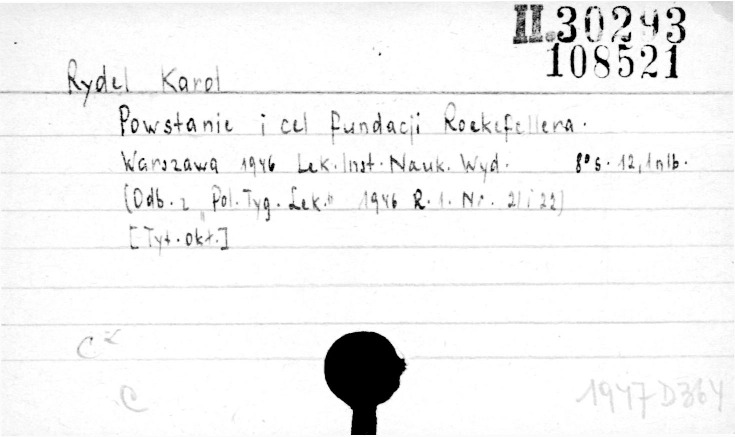 II.30293
108521
Rydel Karol
Powstanie i cel Fundacji Rockefellera.
Warszawa 1946 Lek. Inst. Nauk. Wyd. 8° s. 12, 1 nlb.
(Odb. z „Pol. Tyg. Lek." 1946 R. 1. Nr. 21 i 22)
[Tyt. okł.]
C z
C
1947 D 364